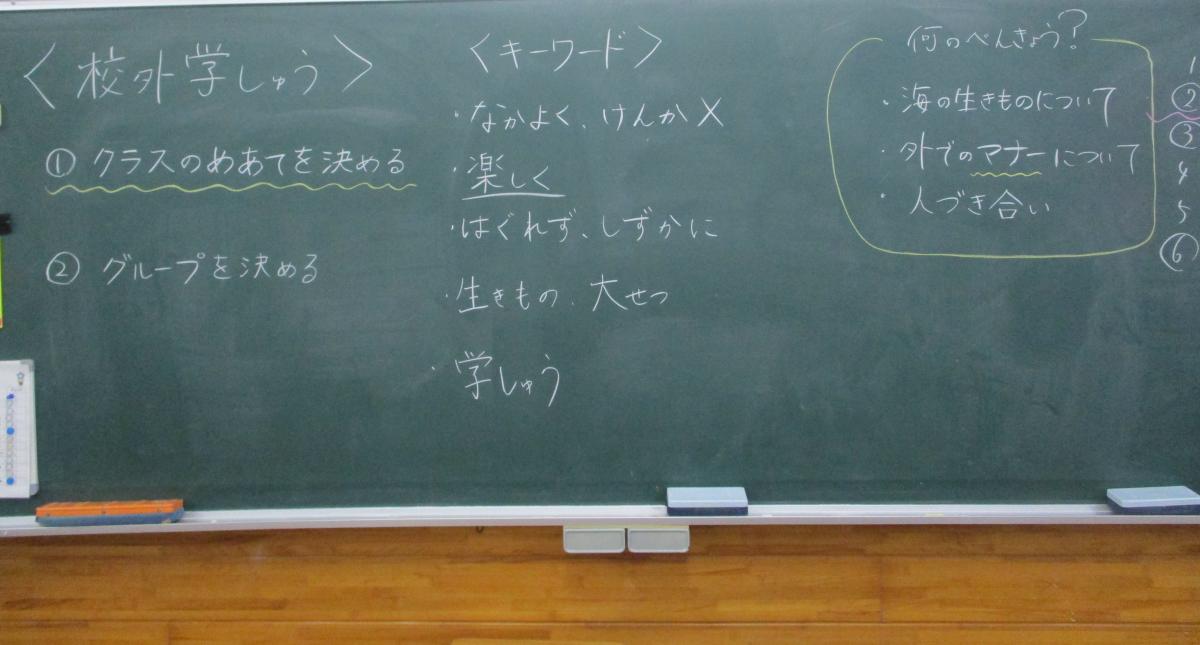 〈校外学しゅう〉
① クラスのめあてを決める
② グループを決める
〈キーワード〉
・なかよく、けんか×
・楽しく
・はぐれず、しずかに
・生きもの、大せつ
・学しゅう
何のべんきょう?
・海の生きものについて
・外でのマナーについて
・人づき合い
1
②
③
4
5
⑥